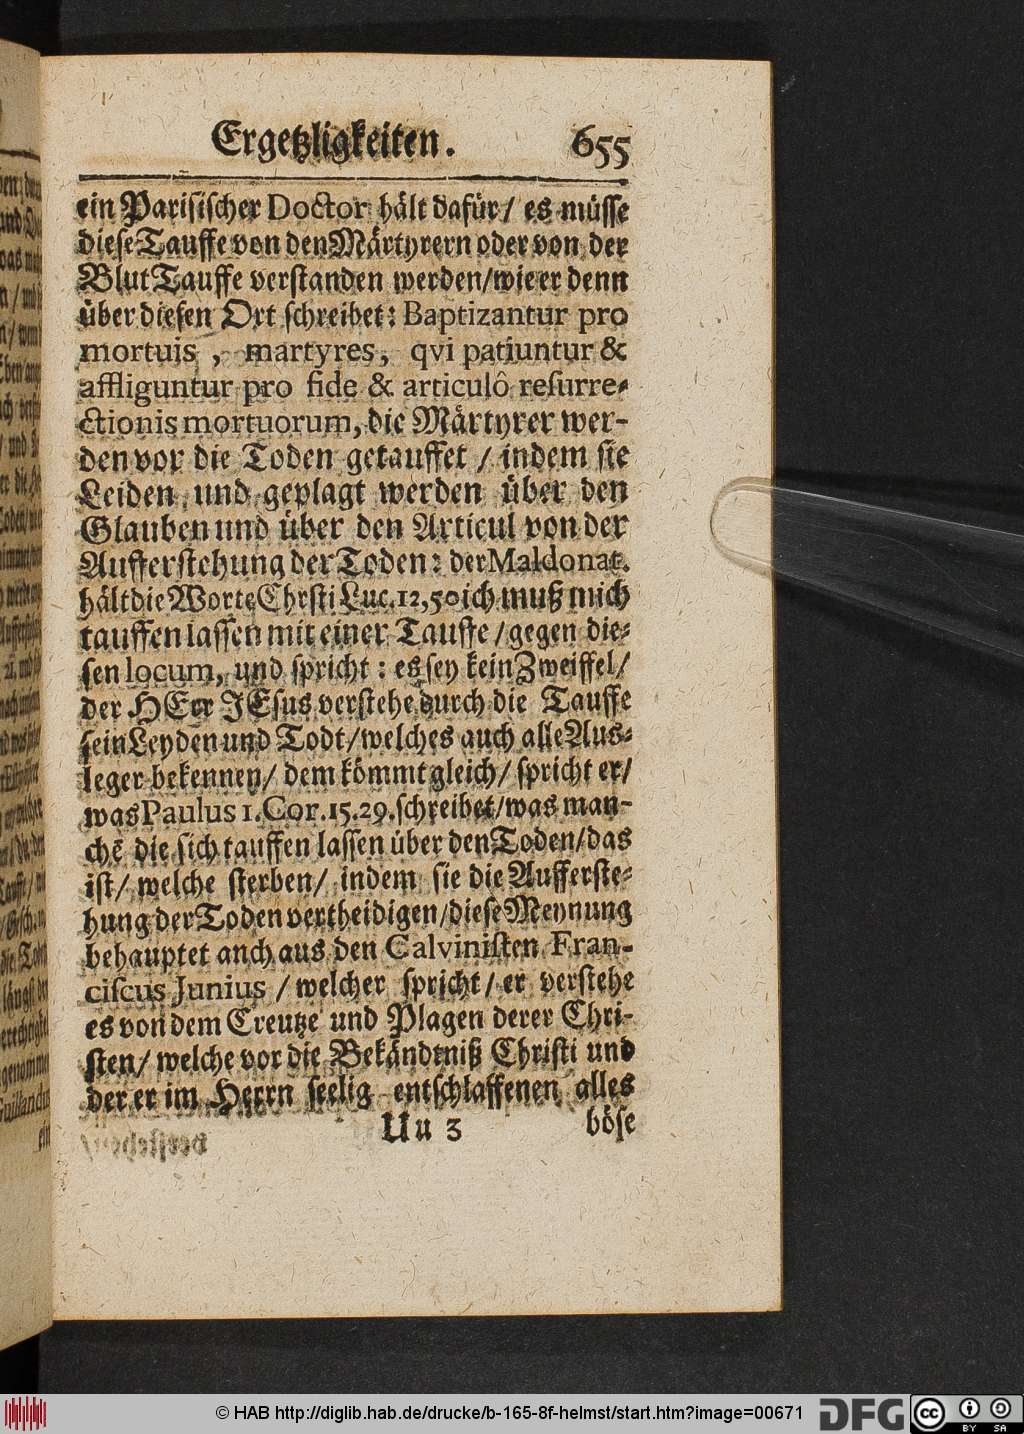 Ergetzligkeiten. 655
ein Parisischer Doctor hält dafür/ es müsse
diese Tauffe von den Märtyrern oder von der
Blut Tauffe verstanden werden/wie er denn
über diesen Ort schreibet: Baptizantur pro
mortuis, martyres, qvi patiuntur &
affliguntur pro fide & articulô resurre-
ctionis mortuorum, die Märtyrer wer-
den vor die Toden getauffet / indem sie
Leiden und geplagt werden über den
Glauben und über den Articul von der
Aufferstehung der Toden: der Maldonat.
hält die Worte Chrsti Luc. 12, 50 ich muß mich
tauffen lassen mit einer Tauffe/gegen die-
sen locum, und spricht: es sey kein Zweiffel/
der HErr JEsus verstehe durch die Tauffe
sein Leyden und Todt/welches auch alle Aus-
leger bekennen/ dem kömmt gleich/ spricht er/
was Paulus 1. Cor. 15. 29. schreibet/was man-
chē die sich tauffen lassen über den Toden/das
ist/ welche sterben/ indem sie die Aufferste-
hung der Toden vertheidigen/diese Meynung
behauptet anch aus den Calvinisten Fran-
ciscus Junius / welcher spricht/ er verstehe
es von dem Creutze und Plagen derer Chri-
sten/ welche vor die Bekändtniß Christi und
der er im Herrn seelig entschlaffenen alles
Uu 3 böse
© HAB http://diglib.hab.de/drucke/b-165-8f-helmst/start.htm?image=00671
DFG
cc BY SA